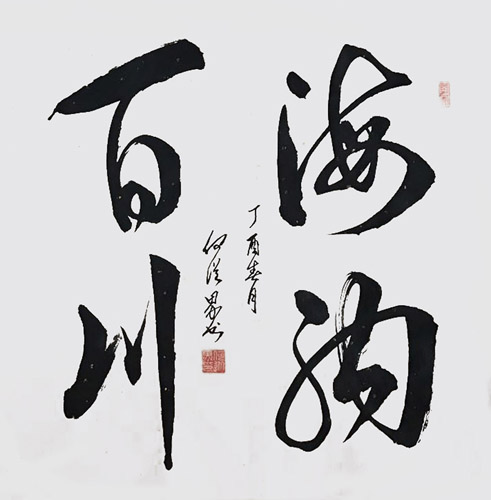 海纳
百川
丁酉春月